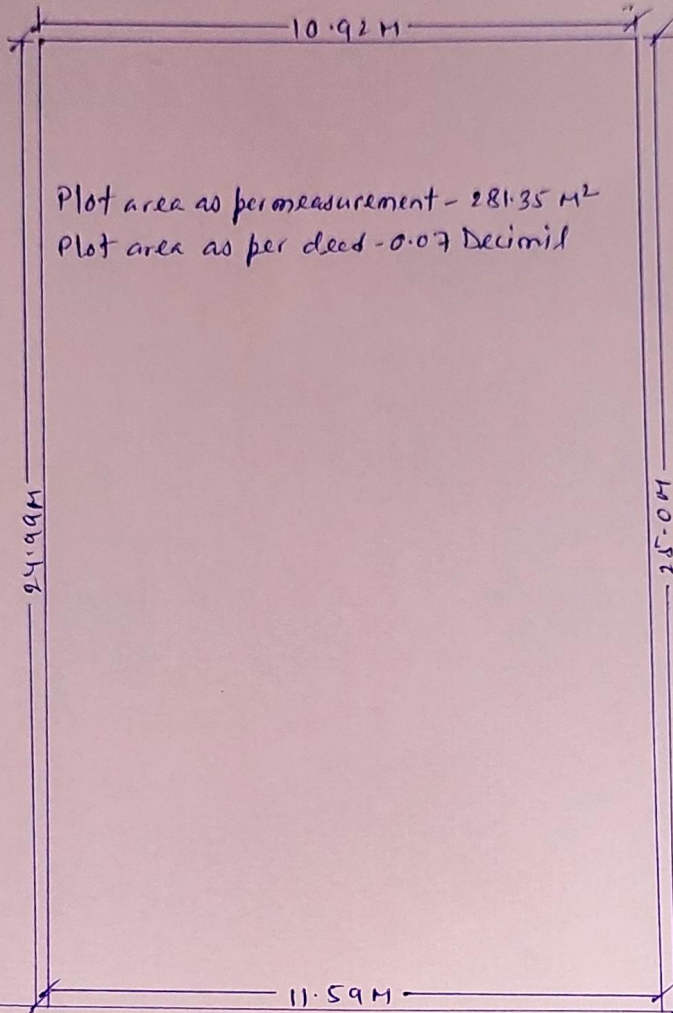 10.92M
Plot area as per measurement - 281.35 M²
Plot area as per deed - 0.07 Decimil
24.99M
25.0M
11.59M